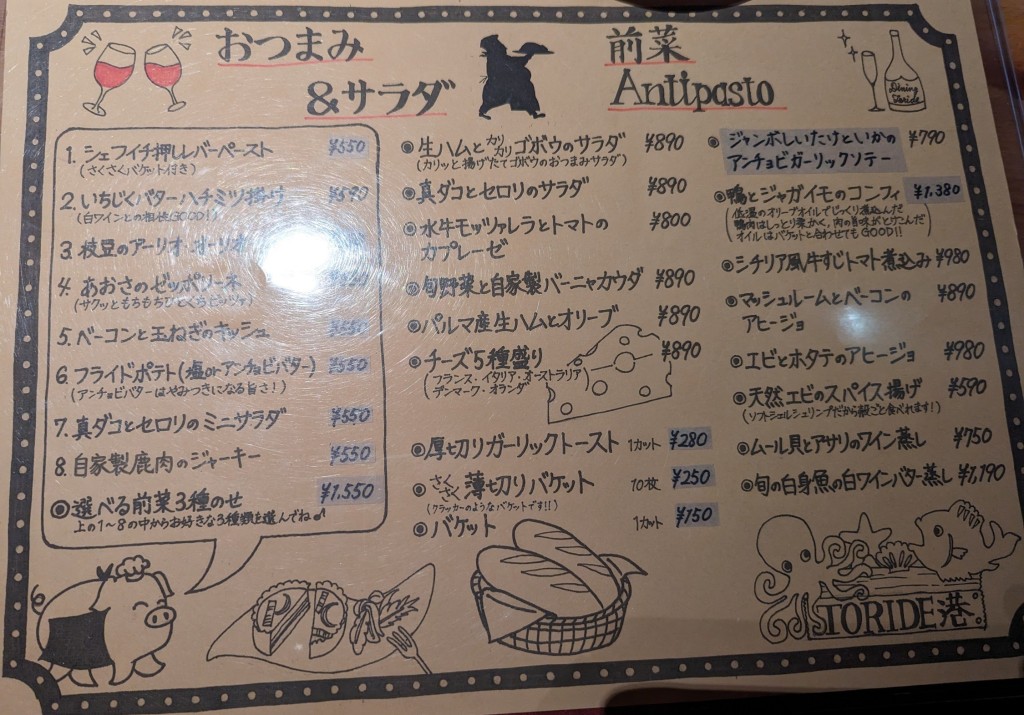 おつまみ
&サラダ
1. シェフイチ押しレバーペースト ¥550
(さくさくバケット付き)
2. いちじくバターハチミツ掛け ¥590
(白ワインとの相性GOOD!!)
3. 枝豆のアーリオ・オーリオ
4. あおさのゼッポリーネ
(サクッともちもちひとくちピッツァ)
5. ベーコンと玉ねぎのキッシュ ¥550
6. フライドポテト(塩orアンチョビバター) ¥550
(アンチョビバターはやみつきになる旨さ!)
7. 真ダコとセロリのミニサラダ ¥550
8. 自家製鹿肉のジャーキー ¥550
◎選べる前菜3種のせ ¥1,550
上の1~8の中からお好きな3種類を選んでね♪
前菜
Antipasto
◉生ハムとカリカリゴボウのサラダ ¥890
(カリッと揚げたてゴボウのおつまみサラダ)
◉真ダコとセロリのサラダ ¥890
◉水牛モッツァレラとトマトの ¥800
カプレーゼ
◉旬野菜と自家製バーニャカウダ ¥890
◉パルマ産生ハムとオリーブ ¥890
◉チーズ5種盛り ¥890
(フランス・イタリア・オーストラリア
デンマーク・オランダ)
◉厚切りガーリックトースト 1カット ¥280
◉さくさく薄切りバケット 10枚 ¥250
(クラッカーのようなバケットです!!)
◉バケット 1カット ¥150
Dining
Toride
◉ジャンボしいたけといかの ¥790
アンチョビガーリックソテー
◉鴨とジャガイモのコンフィ ¥1,380
(低温のオリーブオイルでじっくり煮込んだ
鴨肉はしっとり柔かく、肉の旨味がとけこんだ
オイルはバケットと合わせてもGOOD!!)
◉シチリア風牛すじトマト煮込み ¥980
◉マッシュルームとベーコンの ¥890
アヒージョ
◉エビとホタテのアヒージョ ¥980
◉天然エビのスパイス揚げ ¥590
(ソフトシェルシュリンプだから殻ごと食べれます!)
◉ムール貝とアサリのワイン蒸し ¥750
◉旬の白身魚の白ワインバター蒸し ¥1,190
TORIDE港。